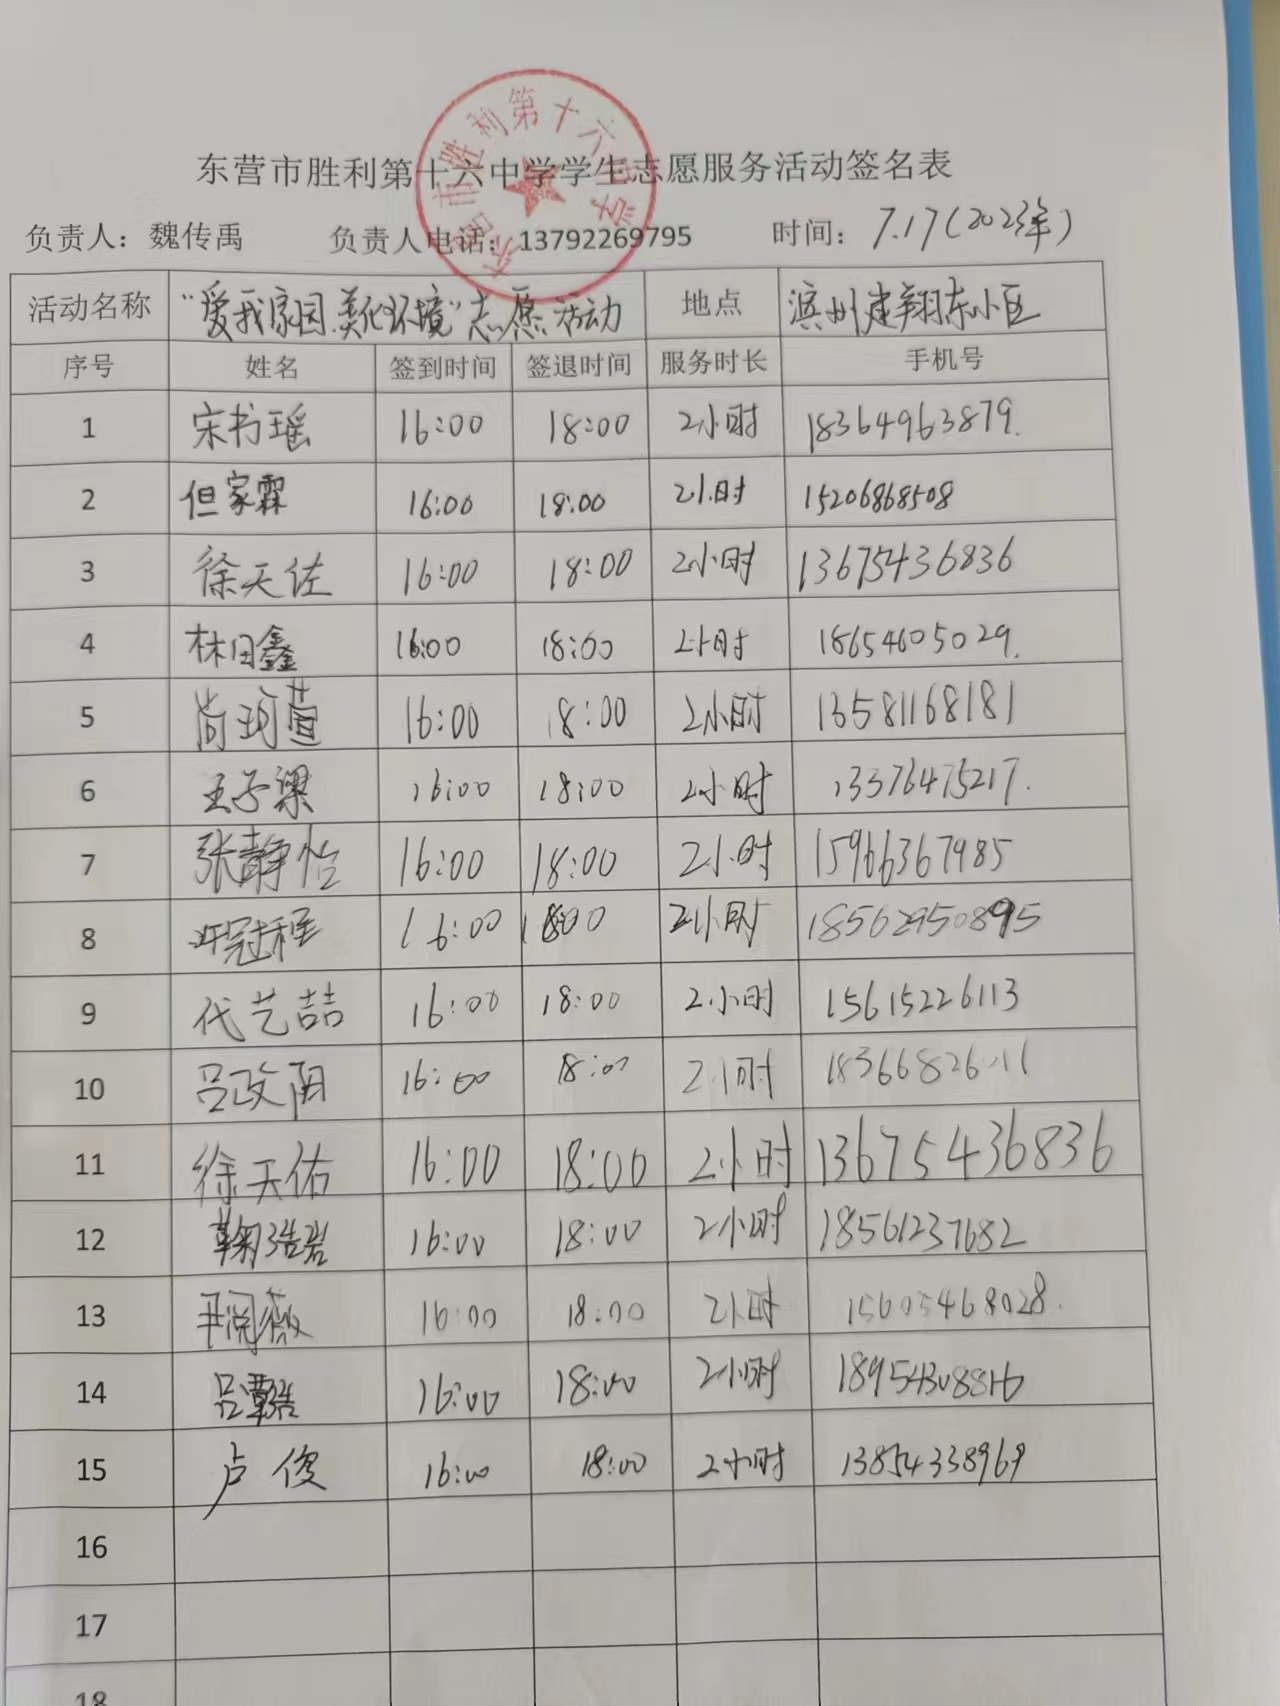 东营市胜利第十六中学
东营市胜利第十六中学学生志愿服务活动签名表
负责人：魏传禹 负责人电话：13792269795 时间：7.17（2023年）
活动名称 “爱我家园.美化环境”志愿活动 地点 滨州建翔东小区
序号 姓名 签到时间 签退时间 服务时长 手机号
1 宋书瑶 16:00 18:00 2小时 18364963879.
2 但家霖 16:00 18:00 2小时 15206868508
3 徐天佐 16:00 18:00 2小时 13675436836
4 林田鑫 16:00 18:00 2小时 18654605029.
5 尚珂萱 16:00 18:00 2小时 13581168181
6 王子梁 16:00 18:00 2小时 13376475217.
7 张静怡 16:00 18:00 2小时 15966367985
8 冠程 16:00 1800 2小时 18562950895
9 代艺喆 16:00 18:00 2小时 15615226113
10 吕政阳 16:00 18:00 2小时
11 徐天佑 16:00 18:00 2小时 13675436836
12 鞠浩岩 16:00 18:00 2小时 18561237682
13 尹阅薇 16:00 18:00 2小时 15605468028.
14 吕 16:00 18:00 2小时 18954308816
15 卢俊 16:00 18:00 2小时 13854338969
16
17
18